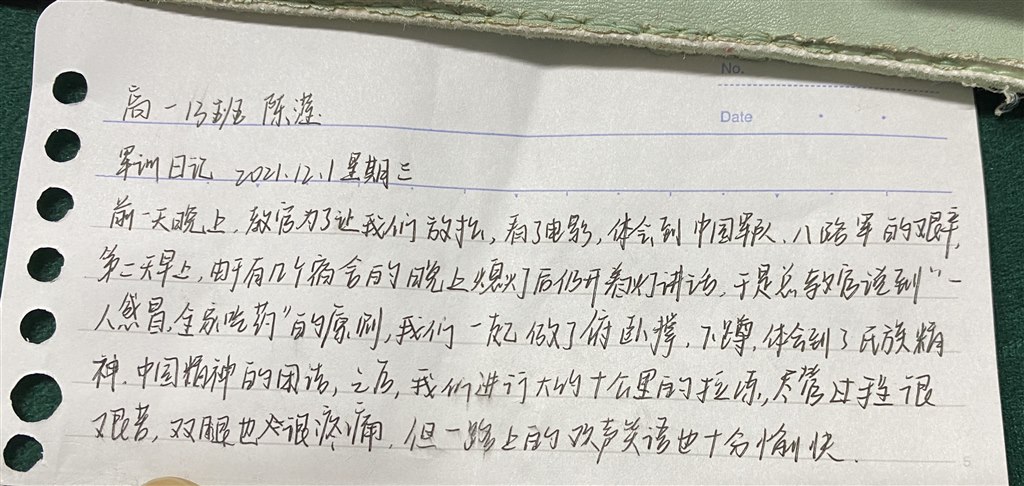 No.
Date
高一13班 陈滢
军训日记 2021.12.1 星期三
前一天晚上,教官为了让我们放松,看了电影,体会到中国军队、八路军的艰辛,
第二天早上,由于有几个宿舍的晚上熄灯后仍开着灯讲话,于是总教官说到“一
人感冒,全家吃药”的原则,我们一起做了俯卧撑、下蹲,体会到了民族精
神、中国精神的团结,之后,我们进行大约十公里的拉练,尽管过程很
艰苦,双腿也会很疼痛,但一路上的欢声笑语也十分愉快.
5